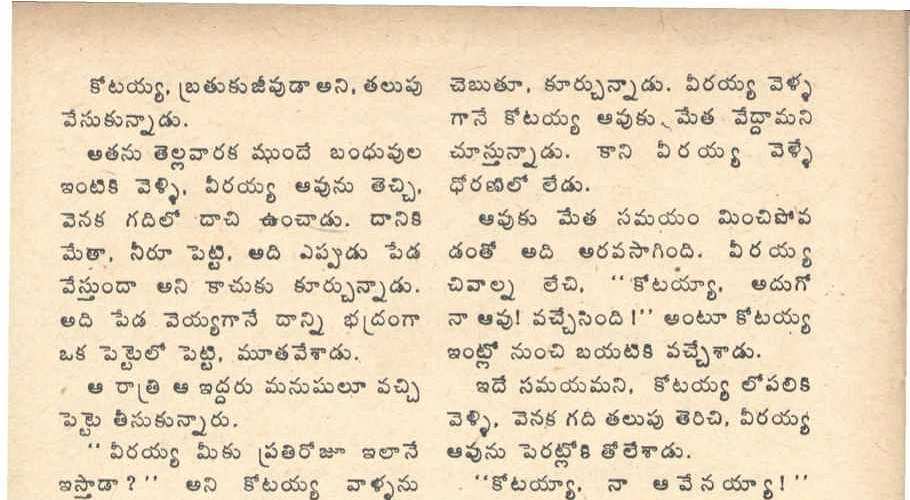 కోటయ్య, బ్రతుకుజీవుడా అని, తలుపు
వేసుకున్నాడు.
అతను తెల్లవారక ముందే బంధువుల
ఇంటికి వెళ్ళి, వీరయ్య ఆవును తెచ్చి,
వెనక గదిలో దాచి ఉంచాడు. దానికి
మేతా, నీరూ పెట్టి, అది ఎప్పుడు పేడ
వేస్తుందా అని కాచుకు కూర్చున్నాడు.
అది పేడ వెయ్యగానే దాన్ని భద్రంగా
ఒక పెట్టెలో పెట్టి, మూతవేశాడు.
ఆ రాత్రి ఆ ఇద్దరు మనుషులూ వచ్చి
పెట్టె తీసుకున్నారు.
“వీరయ్య మీకు ప్రతిరోజూ ఇలానే
ఇస్తాడా?” అని కోటయ్య వాళ్ళను
చెబుతూ, కూర్చున్నాడు. వీరయ్య వెళ్ళ
గానే కోటయ్య ఆవుకు మేత వేద్దామని
చూస్తున్నాడు. కాని వీరయ్య వెళ్ళే
ధోరణిలో లేడు.
ఆవుకు మేత సమయం మించిపోవ
డంతో అది అరవసాగింది. వీరయ్య
చివాల్న లేచి, “కోటయ్యా, అదుగో
నా ఆవు! వచ్చేసింది!” అంటూ కోటయ్య
ఇంట్లో నుంచి బయటికి వచ్చేశాడు.
ఇదే సమయమని, కోటయ్య లోపలికి
వెళ్ళి, వెనక గది తలుపు తెరిచి, వీరయ్య
ఆవును పెరట్లోకి తోలేశాడు.
“కోటయ్యా, నా ఆవేనయ్యా!”